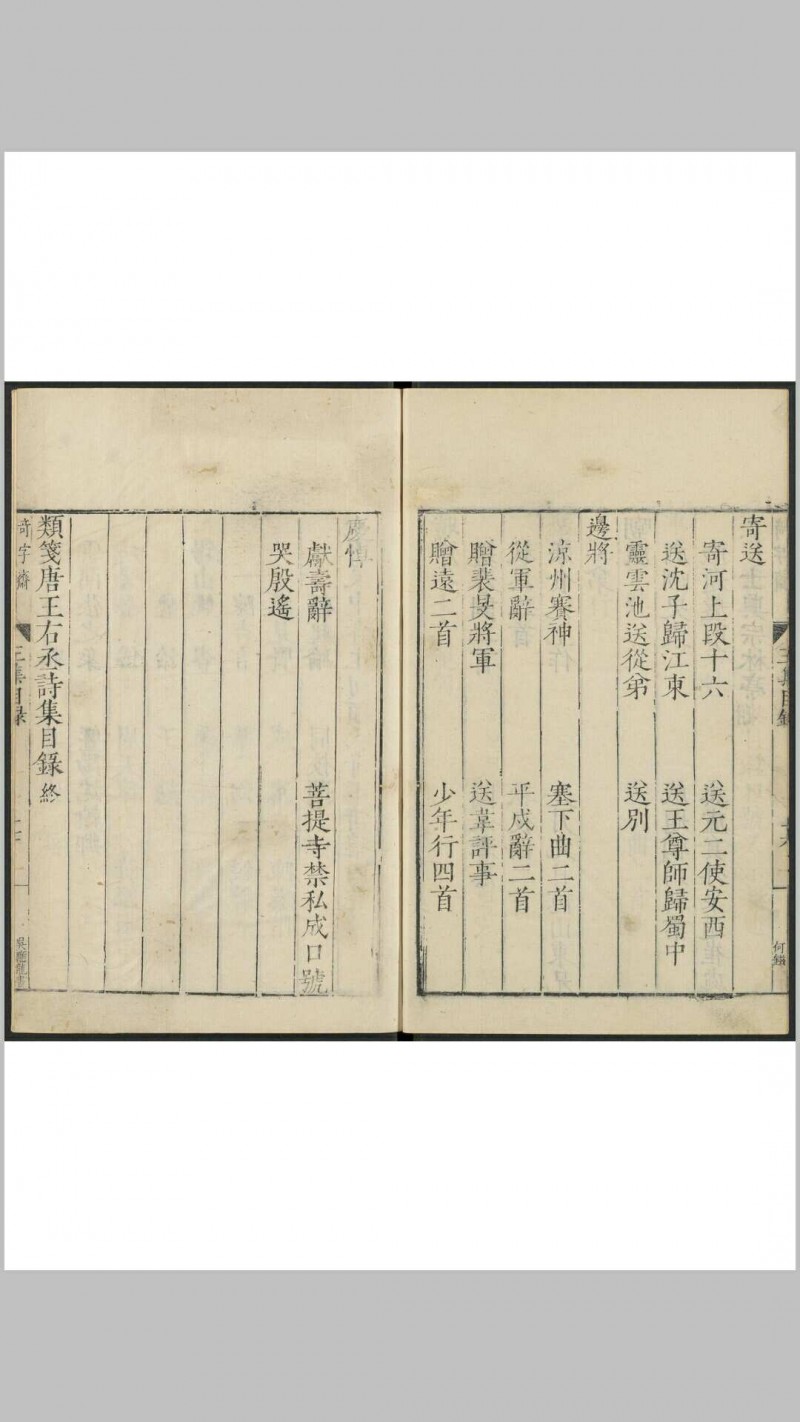 寄送
寄河上段十六　送元二使安西
送沈子歸江東　送王尊師歸蜀中
靈雲池送從弟　送別
邊將
涼州賽神　塞下曲二首
從軍辭　平戍辭二首
贈裴旻將軍　送韋評事
贈遠二首　少年行四首
慶悼
獻壽辭　菩提寺禁私成口號
哭殷遙
類箋唐王右丞詩集目錄終
奇字齋　目錄